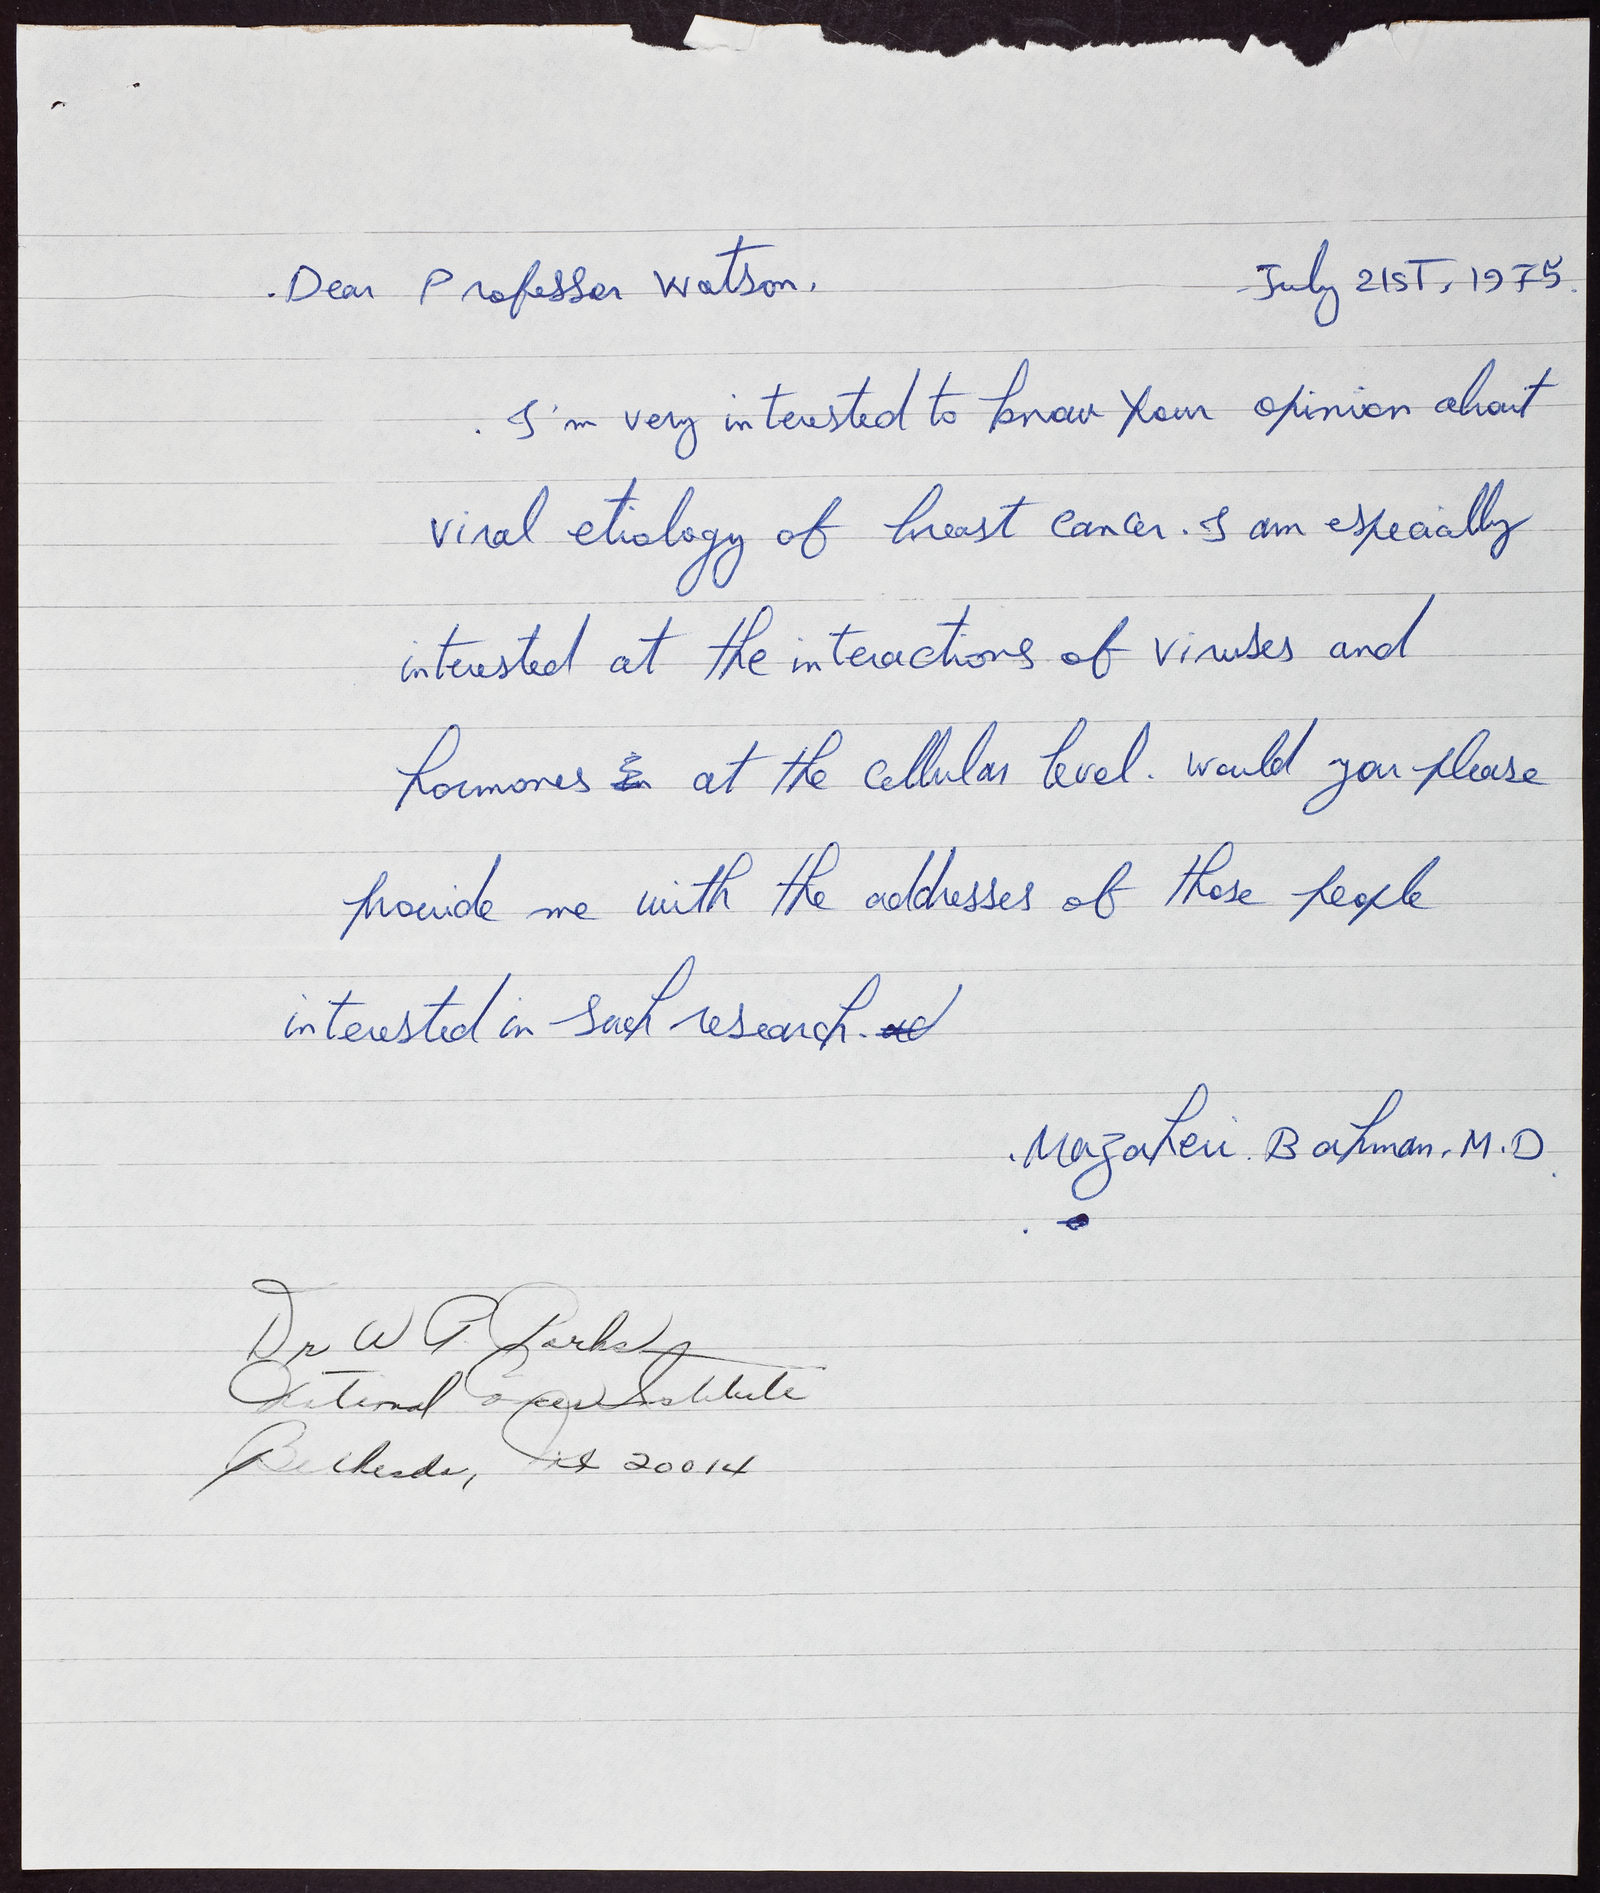 Dear Professor Watson. July 21ST, 1975.
I'm very interested to know your opinion about
viral etiology of breast cancer. I am especially
interested at the interactions of viruses and
hormones at the cellular level. would you please
provide me with the addresses of those people
interested in such research.
Mazaheri. Bahman. M.D
Dr W P Parks
National Cancer Institute
Bethesda, Md 20014